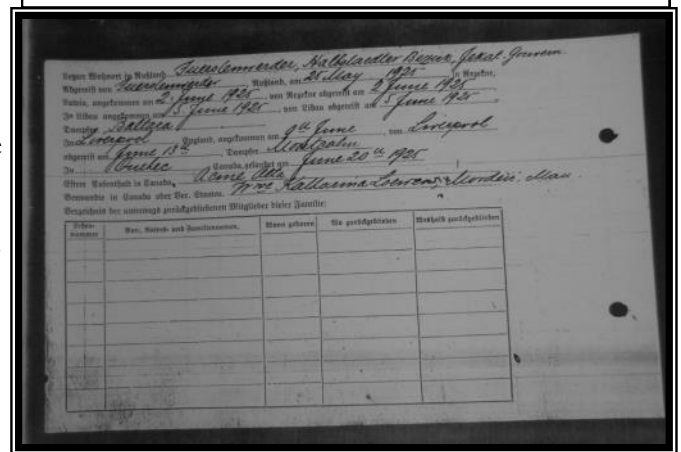 Letzter Wohnort in Rußland Fuerstenwerder, Halbstaedter Bezirk, Jekat. Gouvern.
Abgereist von Fuerstenwerder Rußland, am 25 May 1925 In Rezekne,
Latvia, angekommen am 2 June 1925 von Rezekne abgereist am 2 June 1925
In Libau angekommen am 5 June 1925 von Libau abgereist am 5 June 1925
Dampfer Baltara
In Liverpool England, angekommen am 9th June von Liverpool
abgereist am June 13th Dampfer Montcalm
In Quebec Canada, gelandet am June 20th 1925
Erster Aufenthalt in Canada, Acme Alta
Verwandte in Canada oder Ver. Staaten. Wwe Katharina Loewens, Morden, Man.
Verzeichnis der unterwegs zurückgebliebenen Mitglieder dieser Familie:
Vor-, Vaters- und Familiennamen. Wann geboren Wo zurückgeblieben Weshalb zurückgeblieben